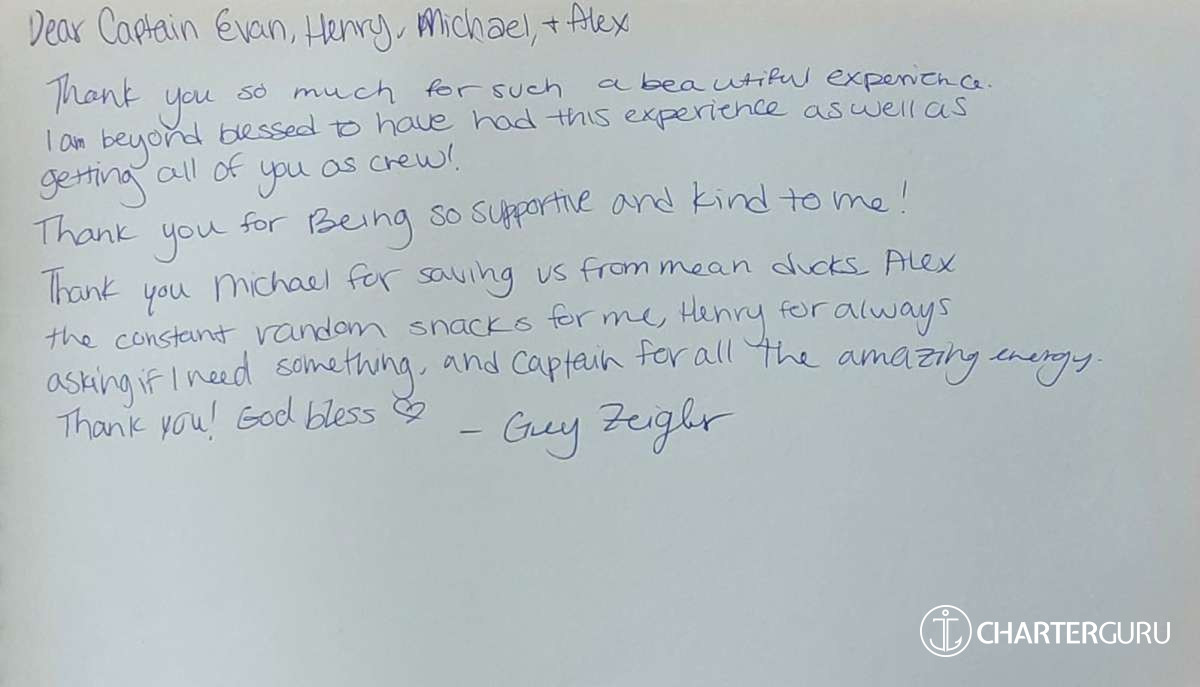 Dear Captain Evan, Henry, Michael, + Alex
Thank you so much for such a beautiful experience.
I am beyond blessed to have had this experience as well as
getting all of you as crew!
Thank you for Being so supportive and kind to me!
Thank you Michael for saving us from mean ducks Alex
the constant random snacks for me, Henry for always
asking if I need something, and Captain for all the amazing energy.
Thank you! God bless ♡
- Guy Zeigler
CHARTERGURU